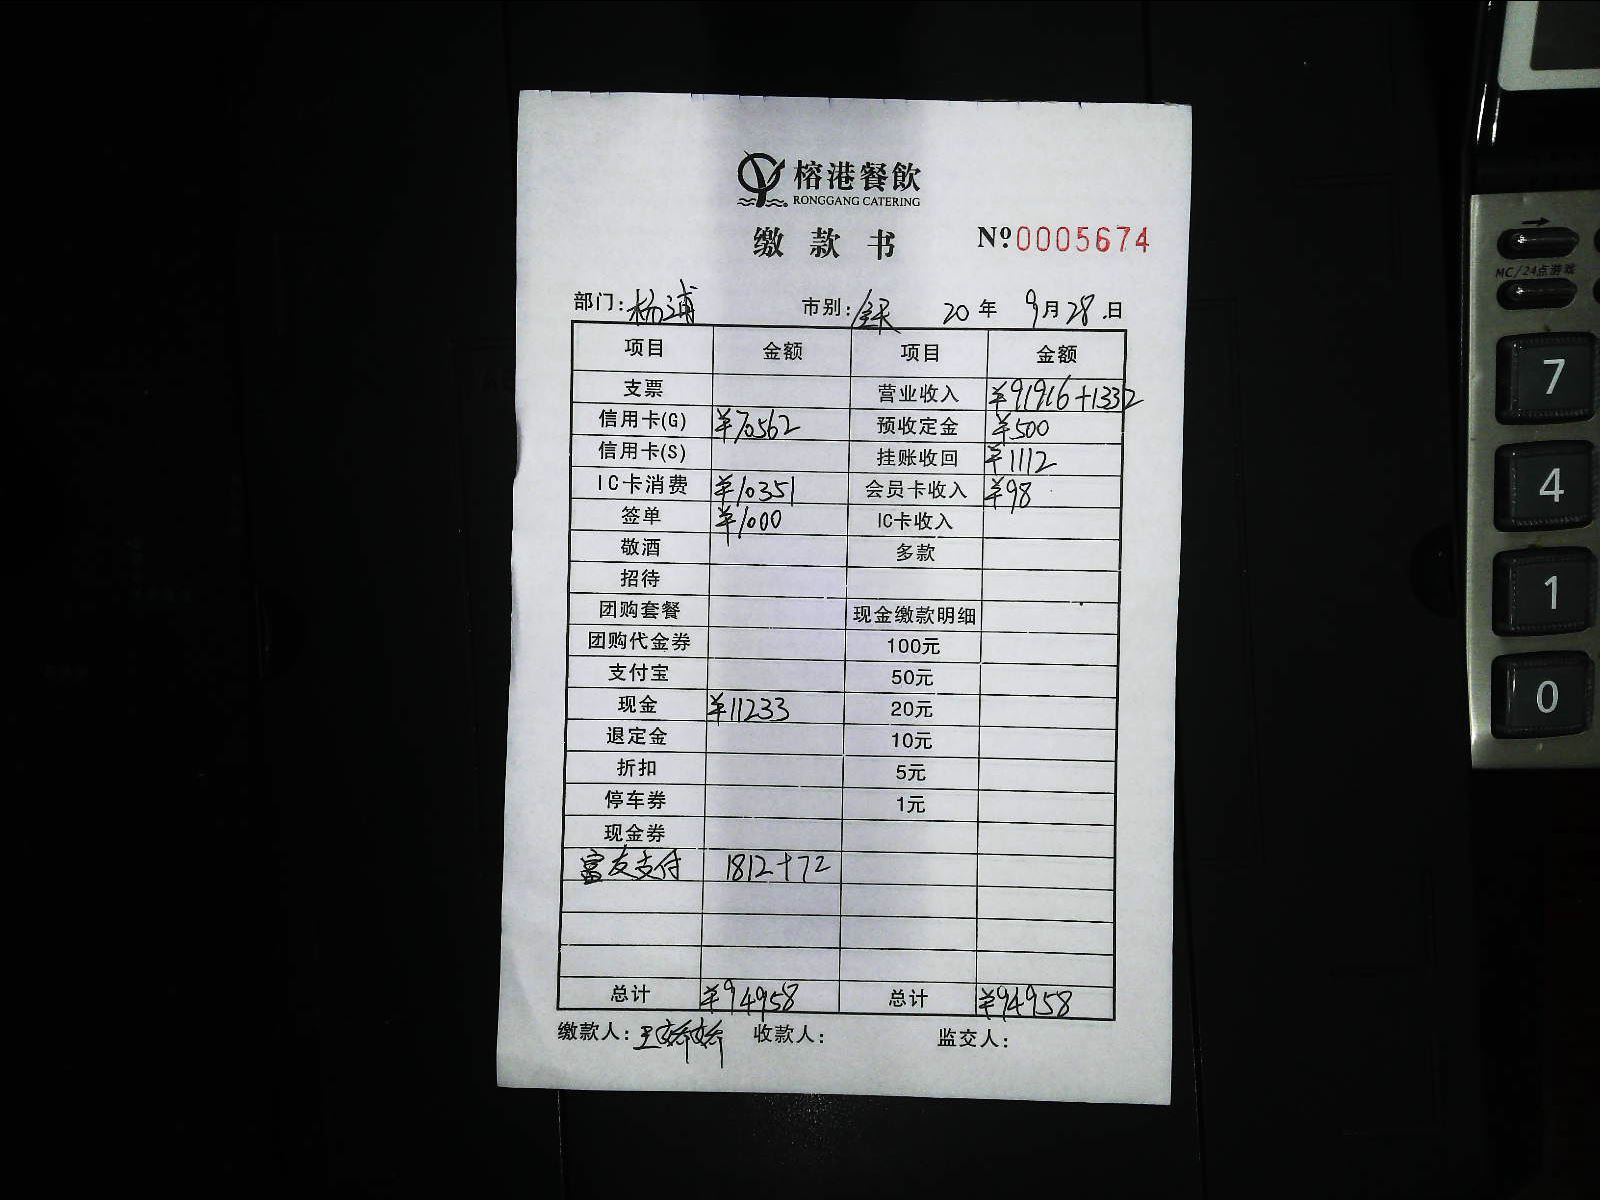 榕港餐飲
RONGGANG CATERING
缴款书 №0005674
部门:杨浦 市别:全天 20年 9月28日
项目 金额 项目 金额
支票 营业收入 ¥91916+1332
信用卡(G) ¥70562 预收定金 ¥500
信用卡(S) 挂账收回 ¥1112
IC卡消费 ¥10351 会员卡收入 ¥98
签单 ¥1000 IC卡收入
敬酒 多款
招待
团购套餐 现金缴款明细
团购代金券 100元
支付宝 50元
现金 ¥11233 20元
退定金 10元
折扣 5元
停车券 1元
现金券
富友支付 1812+72
总计 ¥94958 总计 ¥94958
缴款人:王娇娇 收款人: 监交人:
MC/24点游戏
7
4
1
0